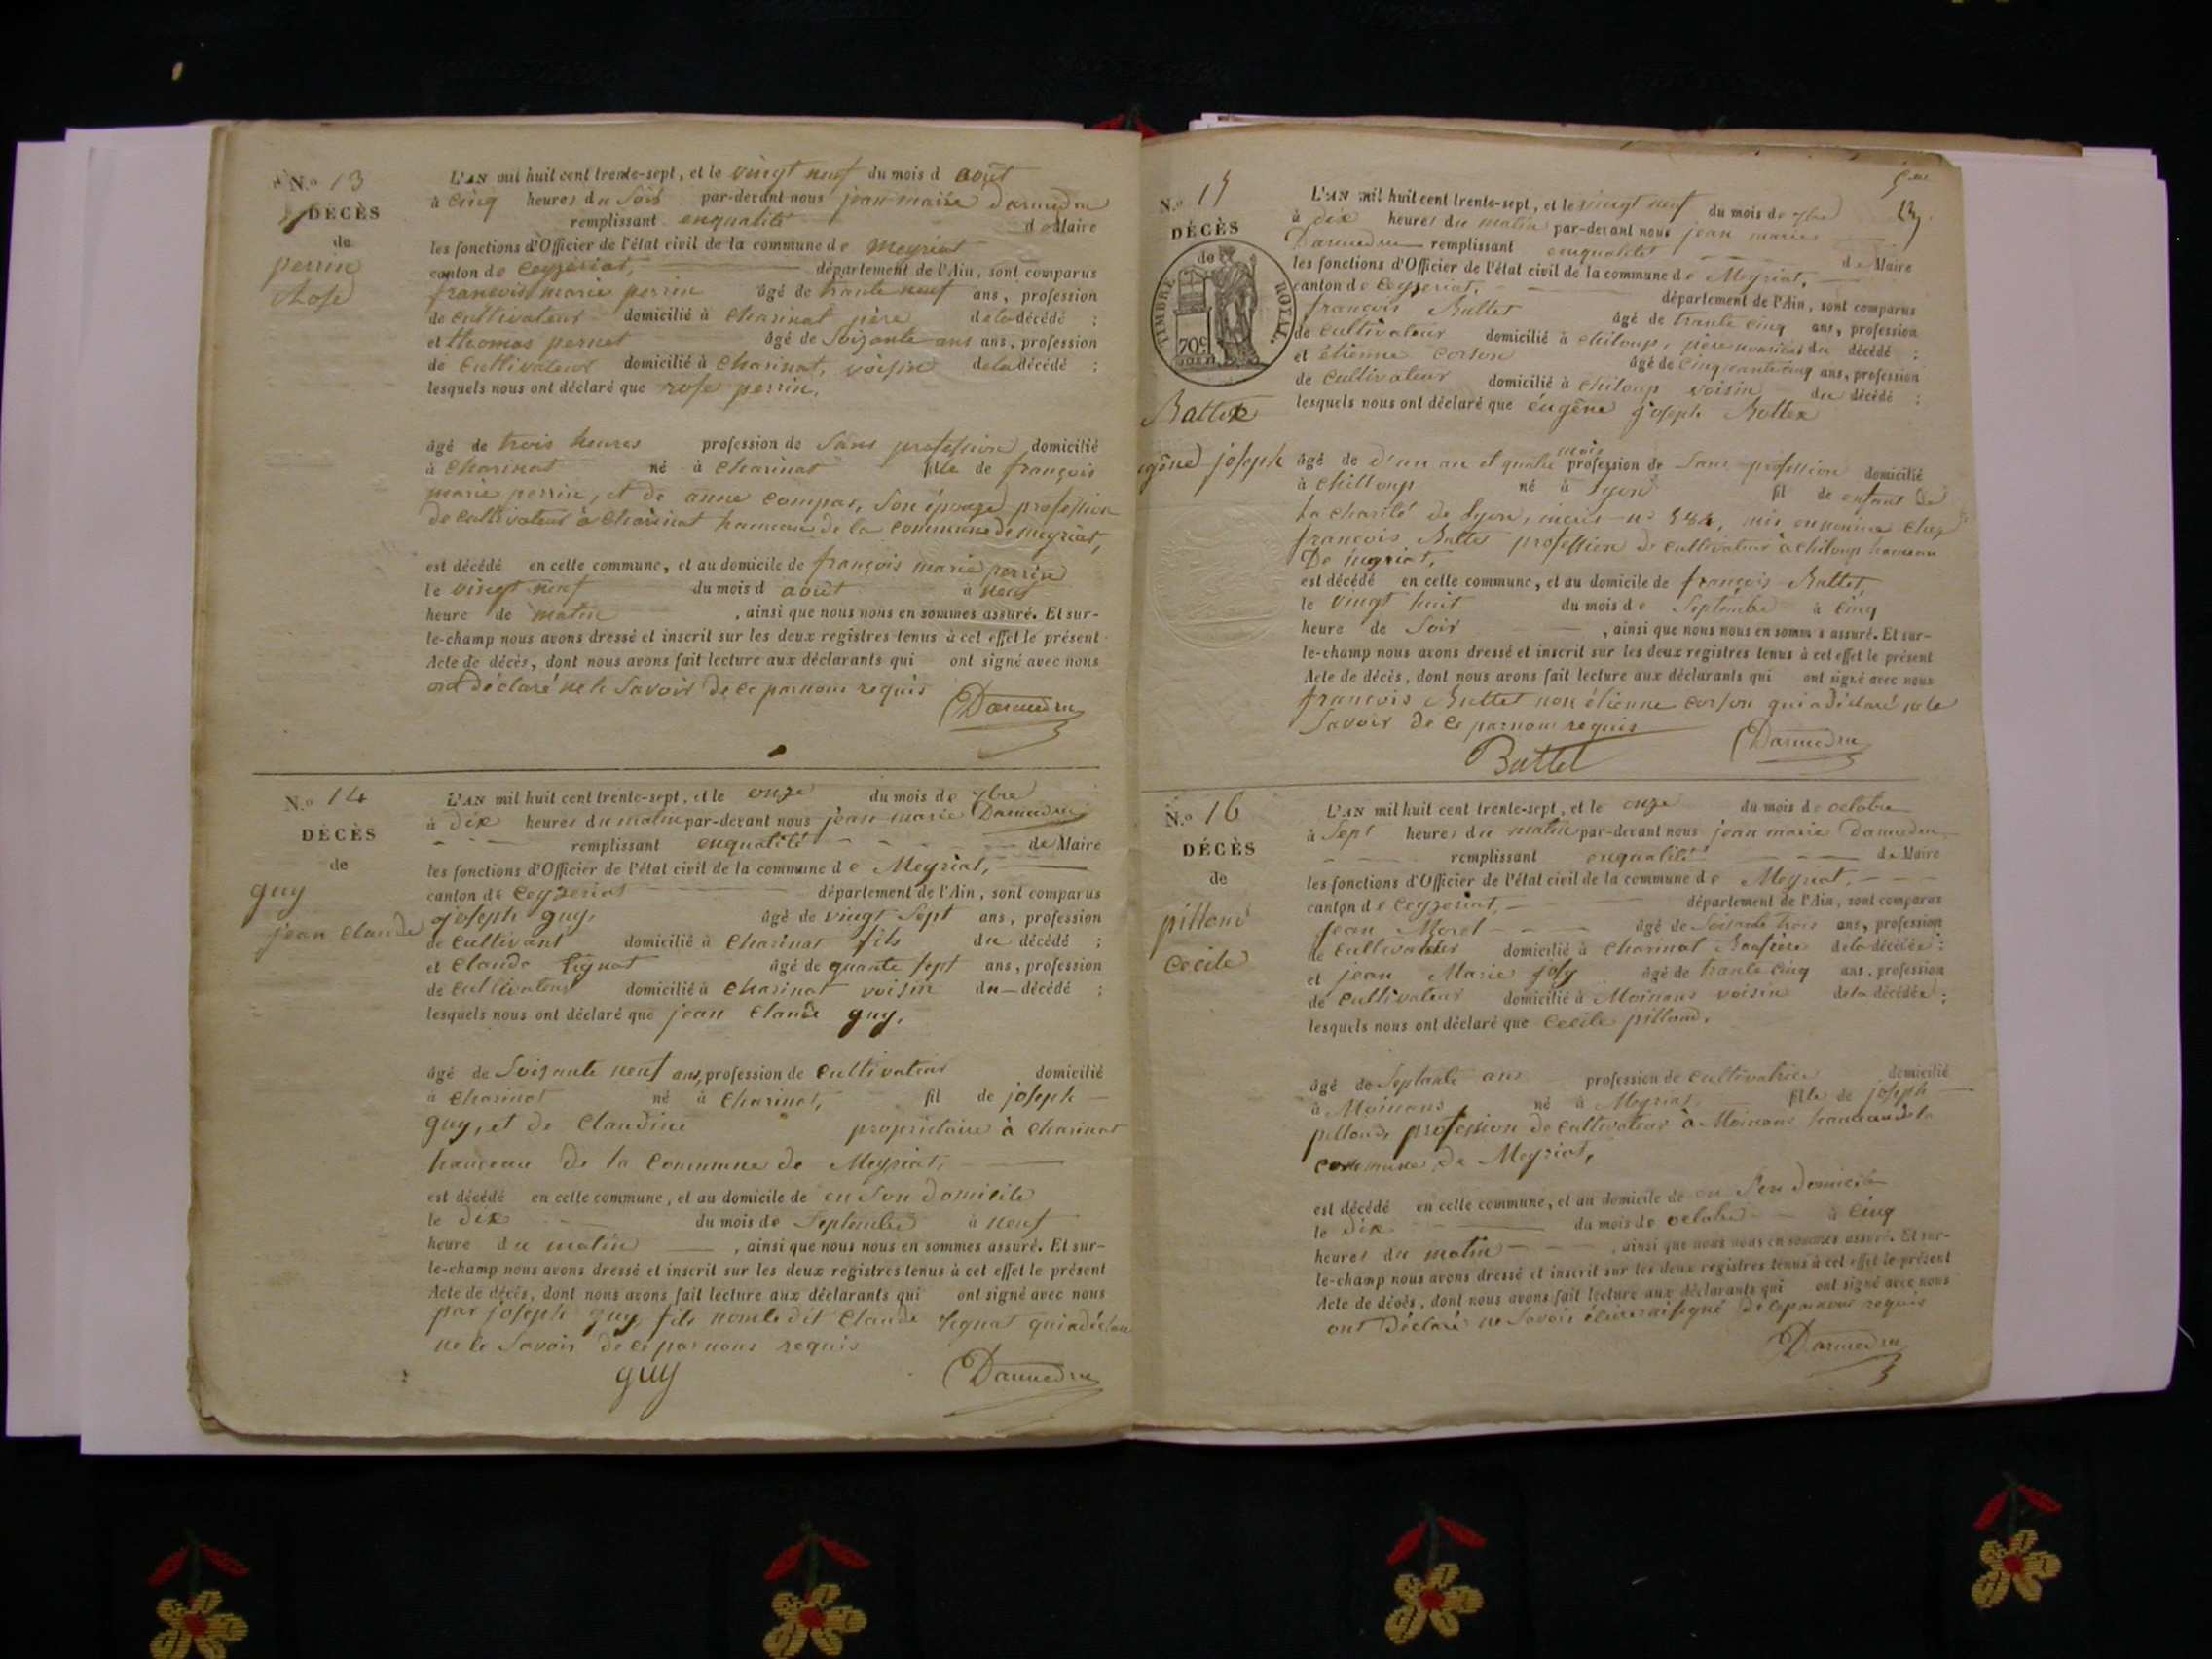 N.o 13
DÉCÈS
de
perrin
Rose
L'AN mil huit cent trente-sept, et le vingt neuf du mois d août
à cinq heures du Soir par-devant nous jean marie Darmedru
remplissant enqualité de Maire
les fonctions d'Officier de l'état civil de la commune de Meyriat
canton de Ceyzeriat, département de l'Ain, sont comparus
francois marie perrin âgé de trante neuf ans, profession
de cultivateur domicilié à Charinat père de la décédé ;
et thomas pernet âgé de Soizante ans ans, profession
de Cultivateur domicilié à Charinat, voisin de la décédé ;
lesquels nous ont déclaré que rose perrin,
âgé de trois heures profession de Sans profession domicilié
à Charinat né à Charinat fille de françois
marie perrin, et de anne compas, Son épouse profession
de cultivateur à Charinat hameau de la commune de meyriat,
est décédé en cette commune, et au domicile de françois marie perrin
le vingt neuf du mois d août à neuf
heure de matin , ainsi que nous nous en sommes assuré. Et sur-
le-champ nous avons dressé et inscrit sur les deux registres tenus à cet effet le présent
Acte de décès, dont nous avons fait lecture aux déclarants qui ont signé avec nous
ont déclaré ne le Savoir de ce parnous requis
Darmedru
N.o 14
DÉCÈS
de
guy
jean Claude
L'AN mil huit cent trente-sept, et le onze du mois de 7bre
à dix heures du matin par-devant nous jean marie Darmedru
remplissant enqualité de Maire
les fonctions d'Officier de l'état civil de la commune de Meyriat,
canton de Ceyzeriat département de l'Ain, sont comparus
joseph guy, âgé de vingt Sept ans, profession
de cultivant domicilié à Charinat fils du décédé ;
et Claude âgé de quante sept ans, profession
de cultivateur domicilié à Charinat voisin du décédé ;
lesquels nous ont déclaré que jean Claude guy,
âgé de Soizante neuf ans, profession de Cultivateur domicilié
à Charinat né à Charinat, fil de joseph
guy, et de Claudine propriétaire à Charinat
hameau de la Commune de Meyriat,
est décédé en cette commune, et au domicile de en Son domicile
le dix du mois de Septembre à neuf
heure du matin , ainsi que nous nous en sommes assuré. Et sur-
le-champ nous avons dressé et inscrit sur les deux registres tenus à cet effet le présent
Acte de décès, dont nous avons fait lecture aux déclarants qui ont signé avec nous
par joseph guy fils nomledit Claude qui a déclaré
ne le Savoir de ce par nous requis
guy
Darmedru
N.o 15
DÉCÈS
de
TIMBRE ROYAL
70c
Battex
joseph
L'AN mil huit cent trente-sept, et le vingt neuf du mois de 7bre
à dix heures du matin par-devant nous jean marie
Darmedru remplissant enqualité de Maire
les fonctions d'Officier de l'état civil de la commune de Meyriat,
canton de Ceyzeriat, département de l'Ain, sont comparus
francois Buttet âgé de trante cinq ans, profession
de cultivateur domicilié à chiloup, père nouricier du décédé ;
et étienne corson âgé de cinquante cinq ans, profession
de Cultivateur domicilié à chiloup voisin du décédé ;
lesquels nous ont déclaré que éugêne joseph Battex
âgé de d'un an et quatre mois profession de Sans profession domicilié
à chilloup né à Lyon fil de enfant de
la charité de Lyon, inscrit no mis ennourice chez
francois Buttet profession de cultivateur à chiloup hameau
De meyriat,
est décédé en cette commune, et au domicile de françois Buttet,
le vingt huit du mois de Septembre à cinq
heure de Soir , ainsi que nous nous en sommes assuré. Et sur-
le-champ nous avons dressé et inscrit sur les deux registres tenus à cet effet le présent
Acte de décès, dont nous avons fait lecture aux déclarants qui ont signé avec nous
francois Buttet non étienne corson qui a déclaré ne le
Savoir de ce parnous requis
Buttet
Darmedru
N.o 16
DÉCÈS
de
pillond
Cecile
L'AN mil huit cent trente-sept, et le onze du mois de octobre
à Sept heures du matin par-devant nous jean marie Darmedru
remplissant enqualité de Maire
les fonctions d'Officier de l'état civil de la commune de Meyriat,
canton de Ceyzeriat, département de l'Ain, sont comparus
jean Morel âgé de Soixante trois ans, profession
de cultivateur domicilié à Charinat de la décédée ;
et jean Marie joly âgé de trante cinq ans, profession
de cultivateur domicilié à Moinans voisin de la décédée ;
lesquels nous ont déclaré que Cecile pillond,
âgé de Septante ans profession de cultivatrice domicilié
à Moinans né à Meyriat fille de joseph
pillond, profession de cultivateur à Moinans hameau de la
commune de Meyriat,
est décédé en cette commune, et au domicile de en Son domicile
le dix du mois de octobre à cinq
heures du matin , ainsi que nous nous en sommes assuré. Et sur-
le-champ nous avons dressé et inscrit sur les deux registres tenus à cet effet le présent
Acte de décès, dont nous avons fait lecture aux déclarants qui ont signé avec nous
ont Déclaré ne Savoir De ce par nous requis
Darmedru